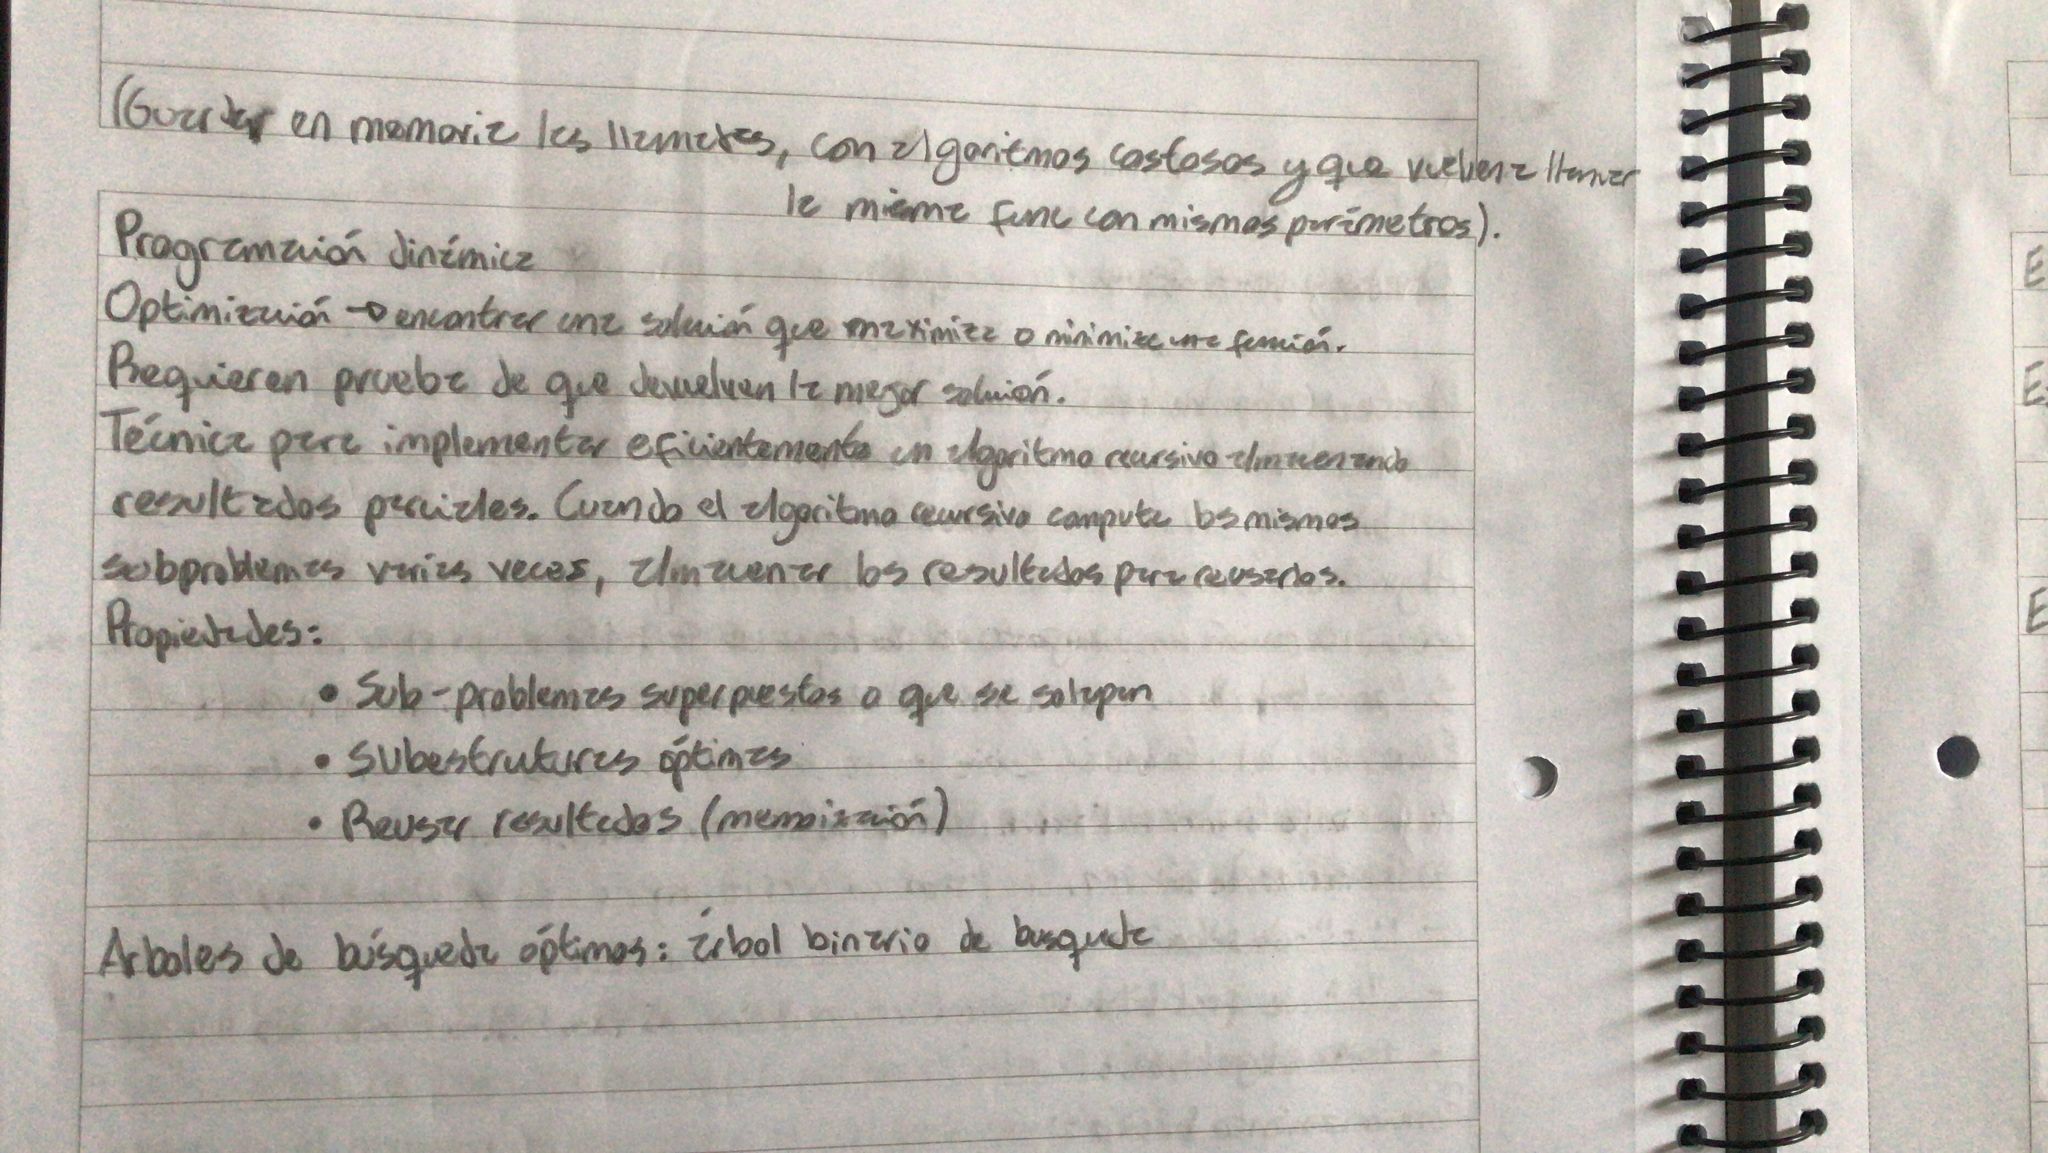 (Guardar en memoria las llamadas, con algoritmos costosos y que vuelven a llamar
la misma func con mismos parámetros).
Programación dinámica
Optimización → encontrar una solución que maximiza o minimiza una función.
Requieren prueba de que devuelven la mejor solución.
Técnica para implementar eficientemente un algoritmo recursivo almacenando
resultados parciales. Cuando el algoritmo recursivo computa los mismos
subproblemas varias veces, almacenar los resultados para reusarlos.
Propiedades:
• Sub-problemas superpuestos o que se solapan
• Subestruturas óptimas
• Reusar resultados (memoización)
Arboles de búsqueda óptimos: árbol binario de busqueda
E
E
E